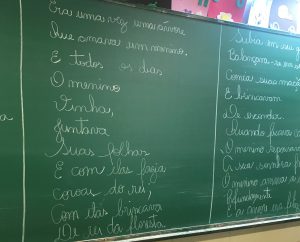 Era uma vez uma árvore
Que amava um menino.
E todos os dias
O menino
Vinha,
Juntava
Suas folhas
E com elas fazia
coroas do rei,
Com elas brincava
De rei da floresta
a
Subia em seu
Balançava-se em
Comia suas maçãs
E brincavam
De esconder.
Quando ficava
O menino repousava
À sua sombra
O menino amava a
Profundamente
E a árvore era